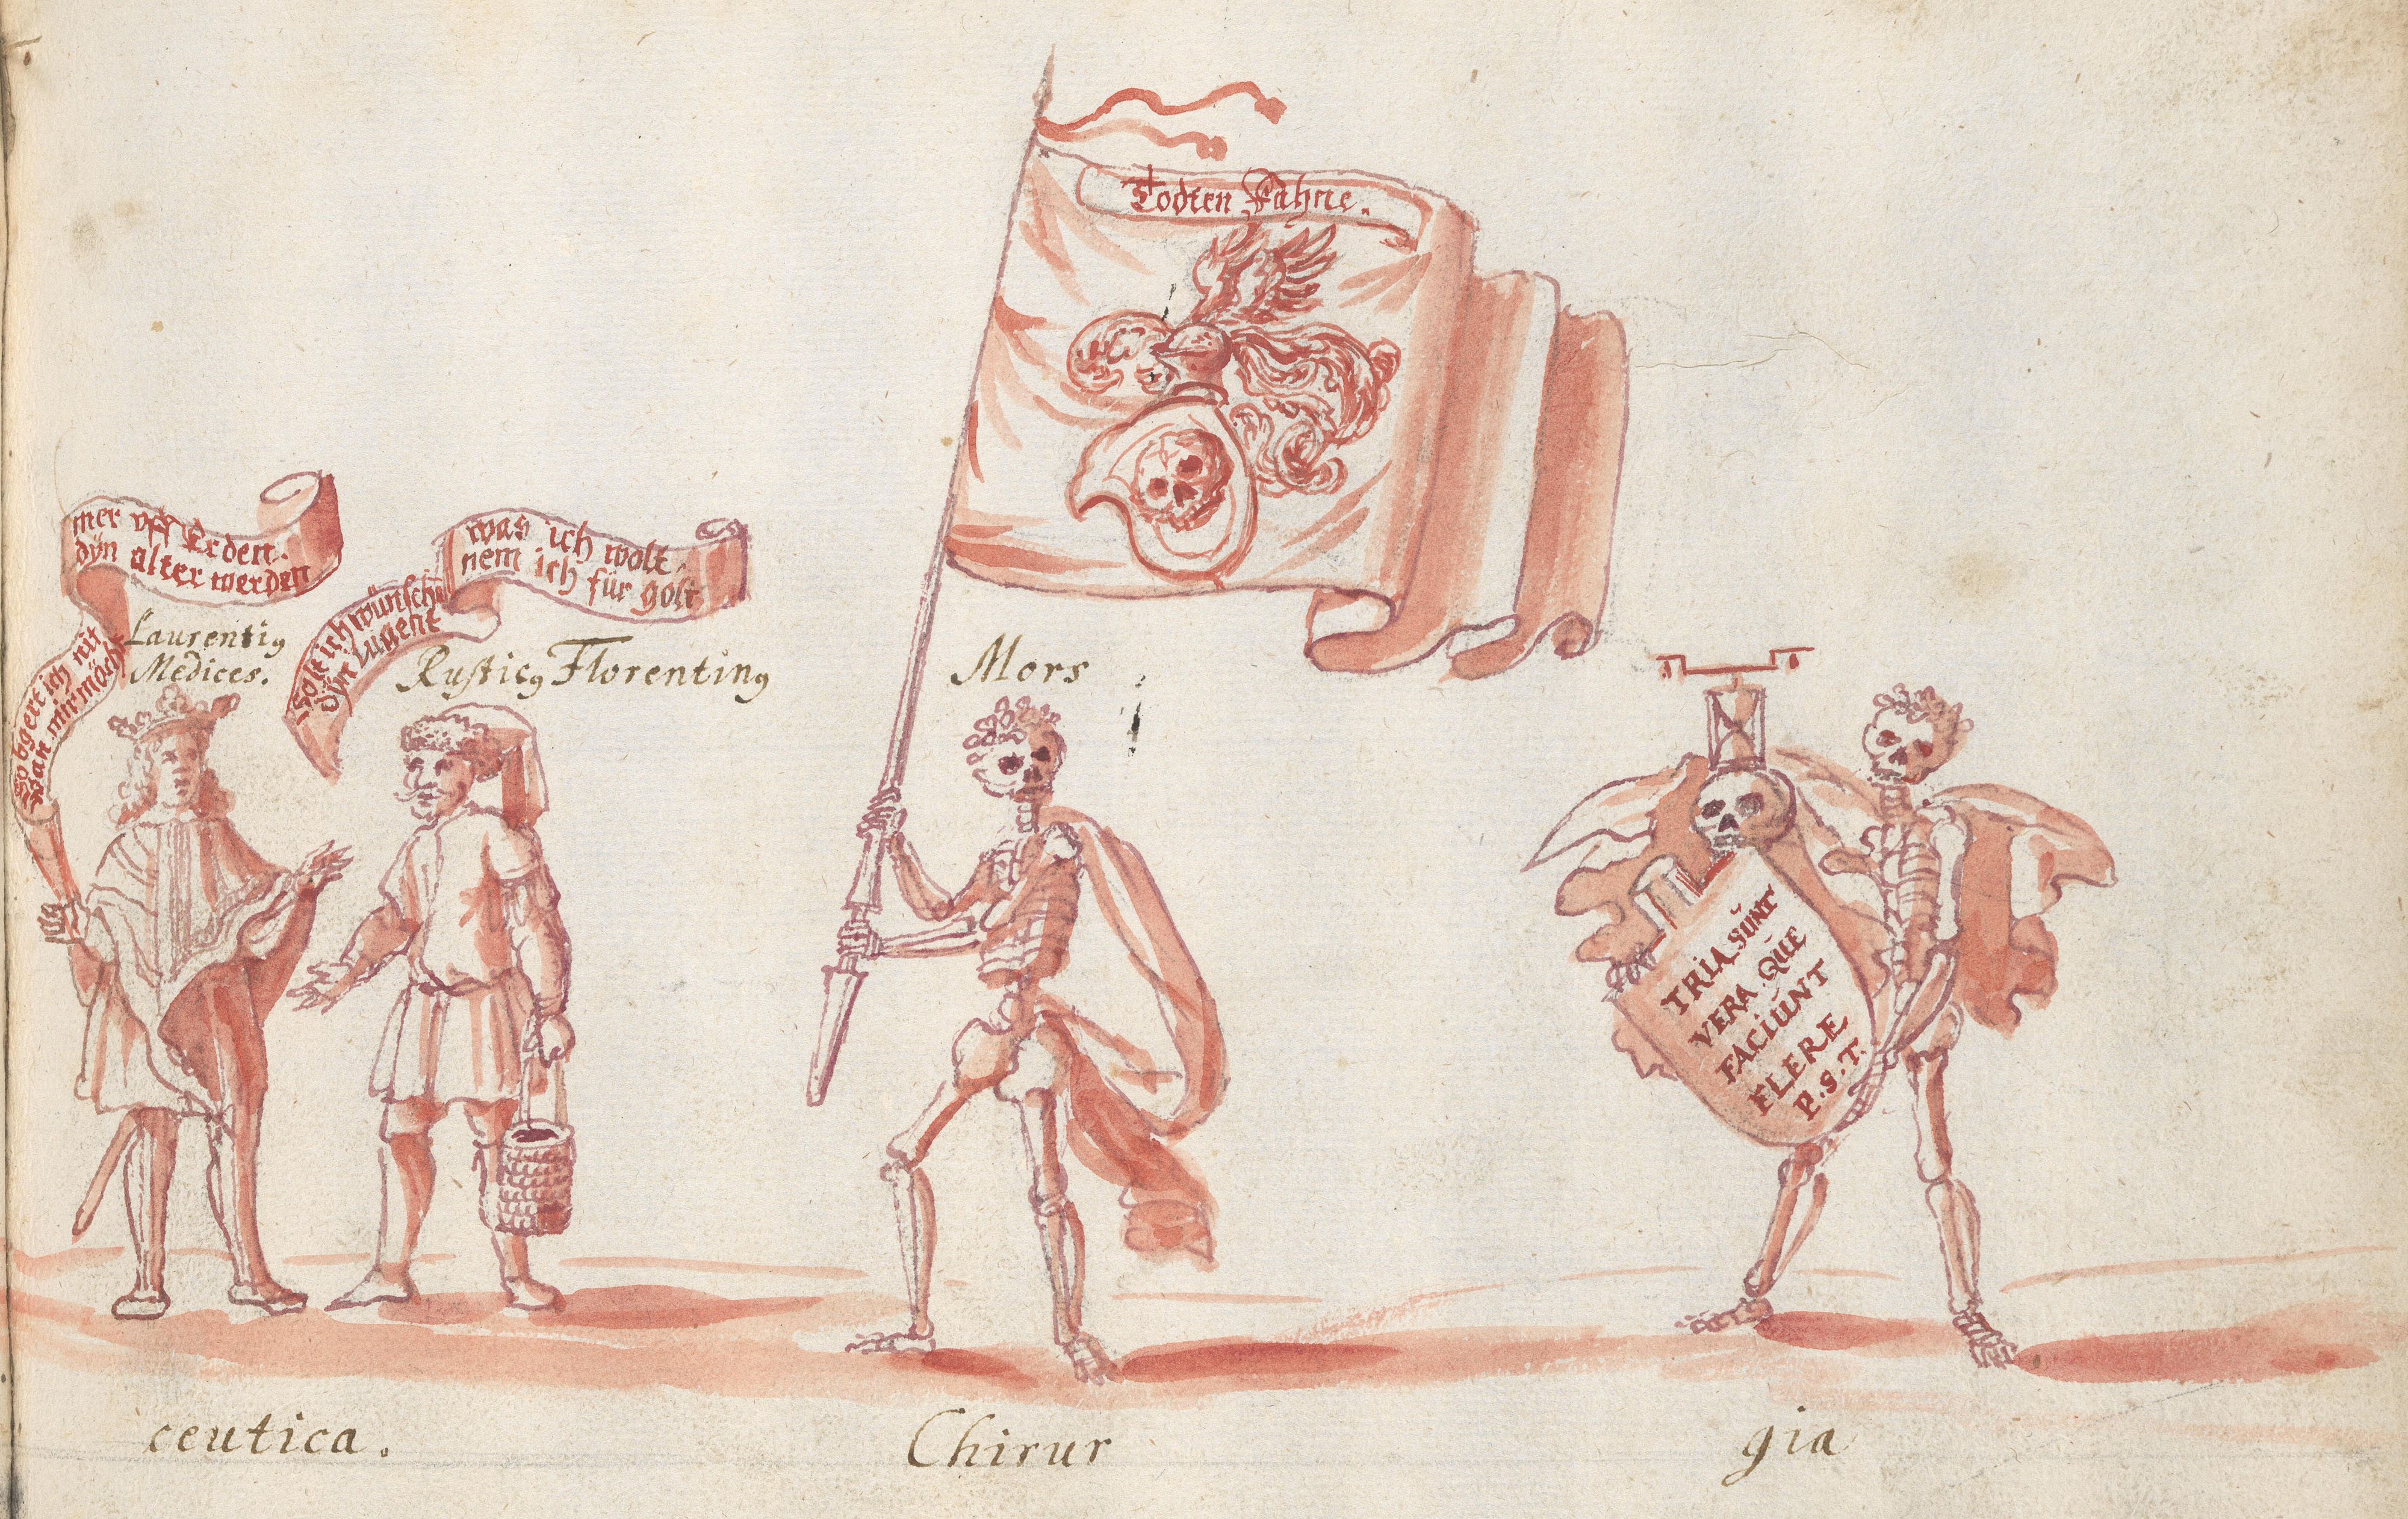 so bgert ich nit
wan mir möcht
mer vff Erden.
dÿn alter werden
Laurentiꝰ
Medices.
Solt ich wünschē
dÿn Jugent
was ich wolt.
nem ich für golt
Rusticꝰ Florentinꝰ
Todten Fahne.
Mors
TRIA SŬNT
VERA QŬE
FACIŬNT
FLERE
P. S. T.
ceutica.
Chirur
gia